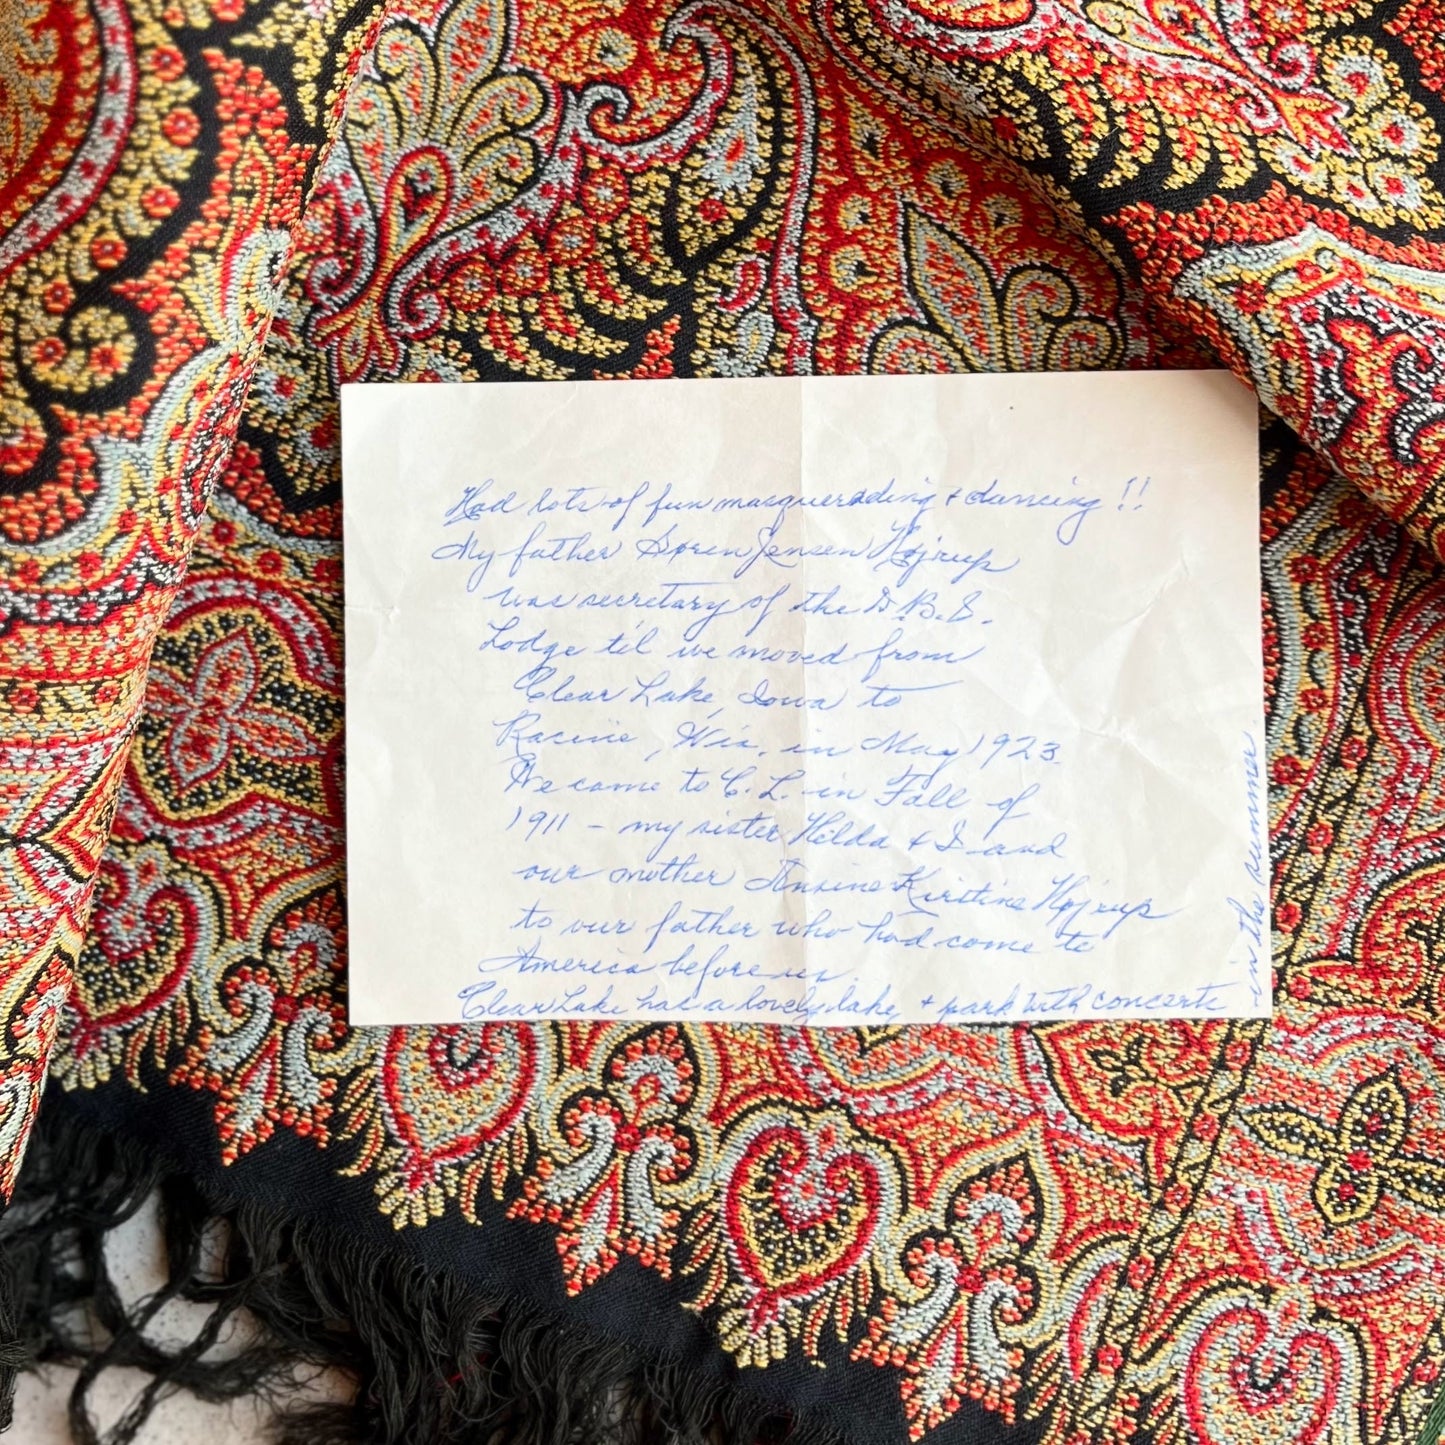 Had lots of fun masquerading + dancing !!
My father Soren Jensen Hojrup
was secretary of the D.B.S.
Lodge til we moved from
Clear Lake, Iowa to
Racine, Wis. in May 1923.
We came to C.L. in Fall of
1911 – my sister Hilda + I and
our mother Ansine Kirstine Hojrup
to our father who had come to
America before us.
Clear Lake has a lovely lake, + park with concerts
in the summer.